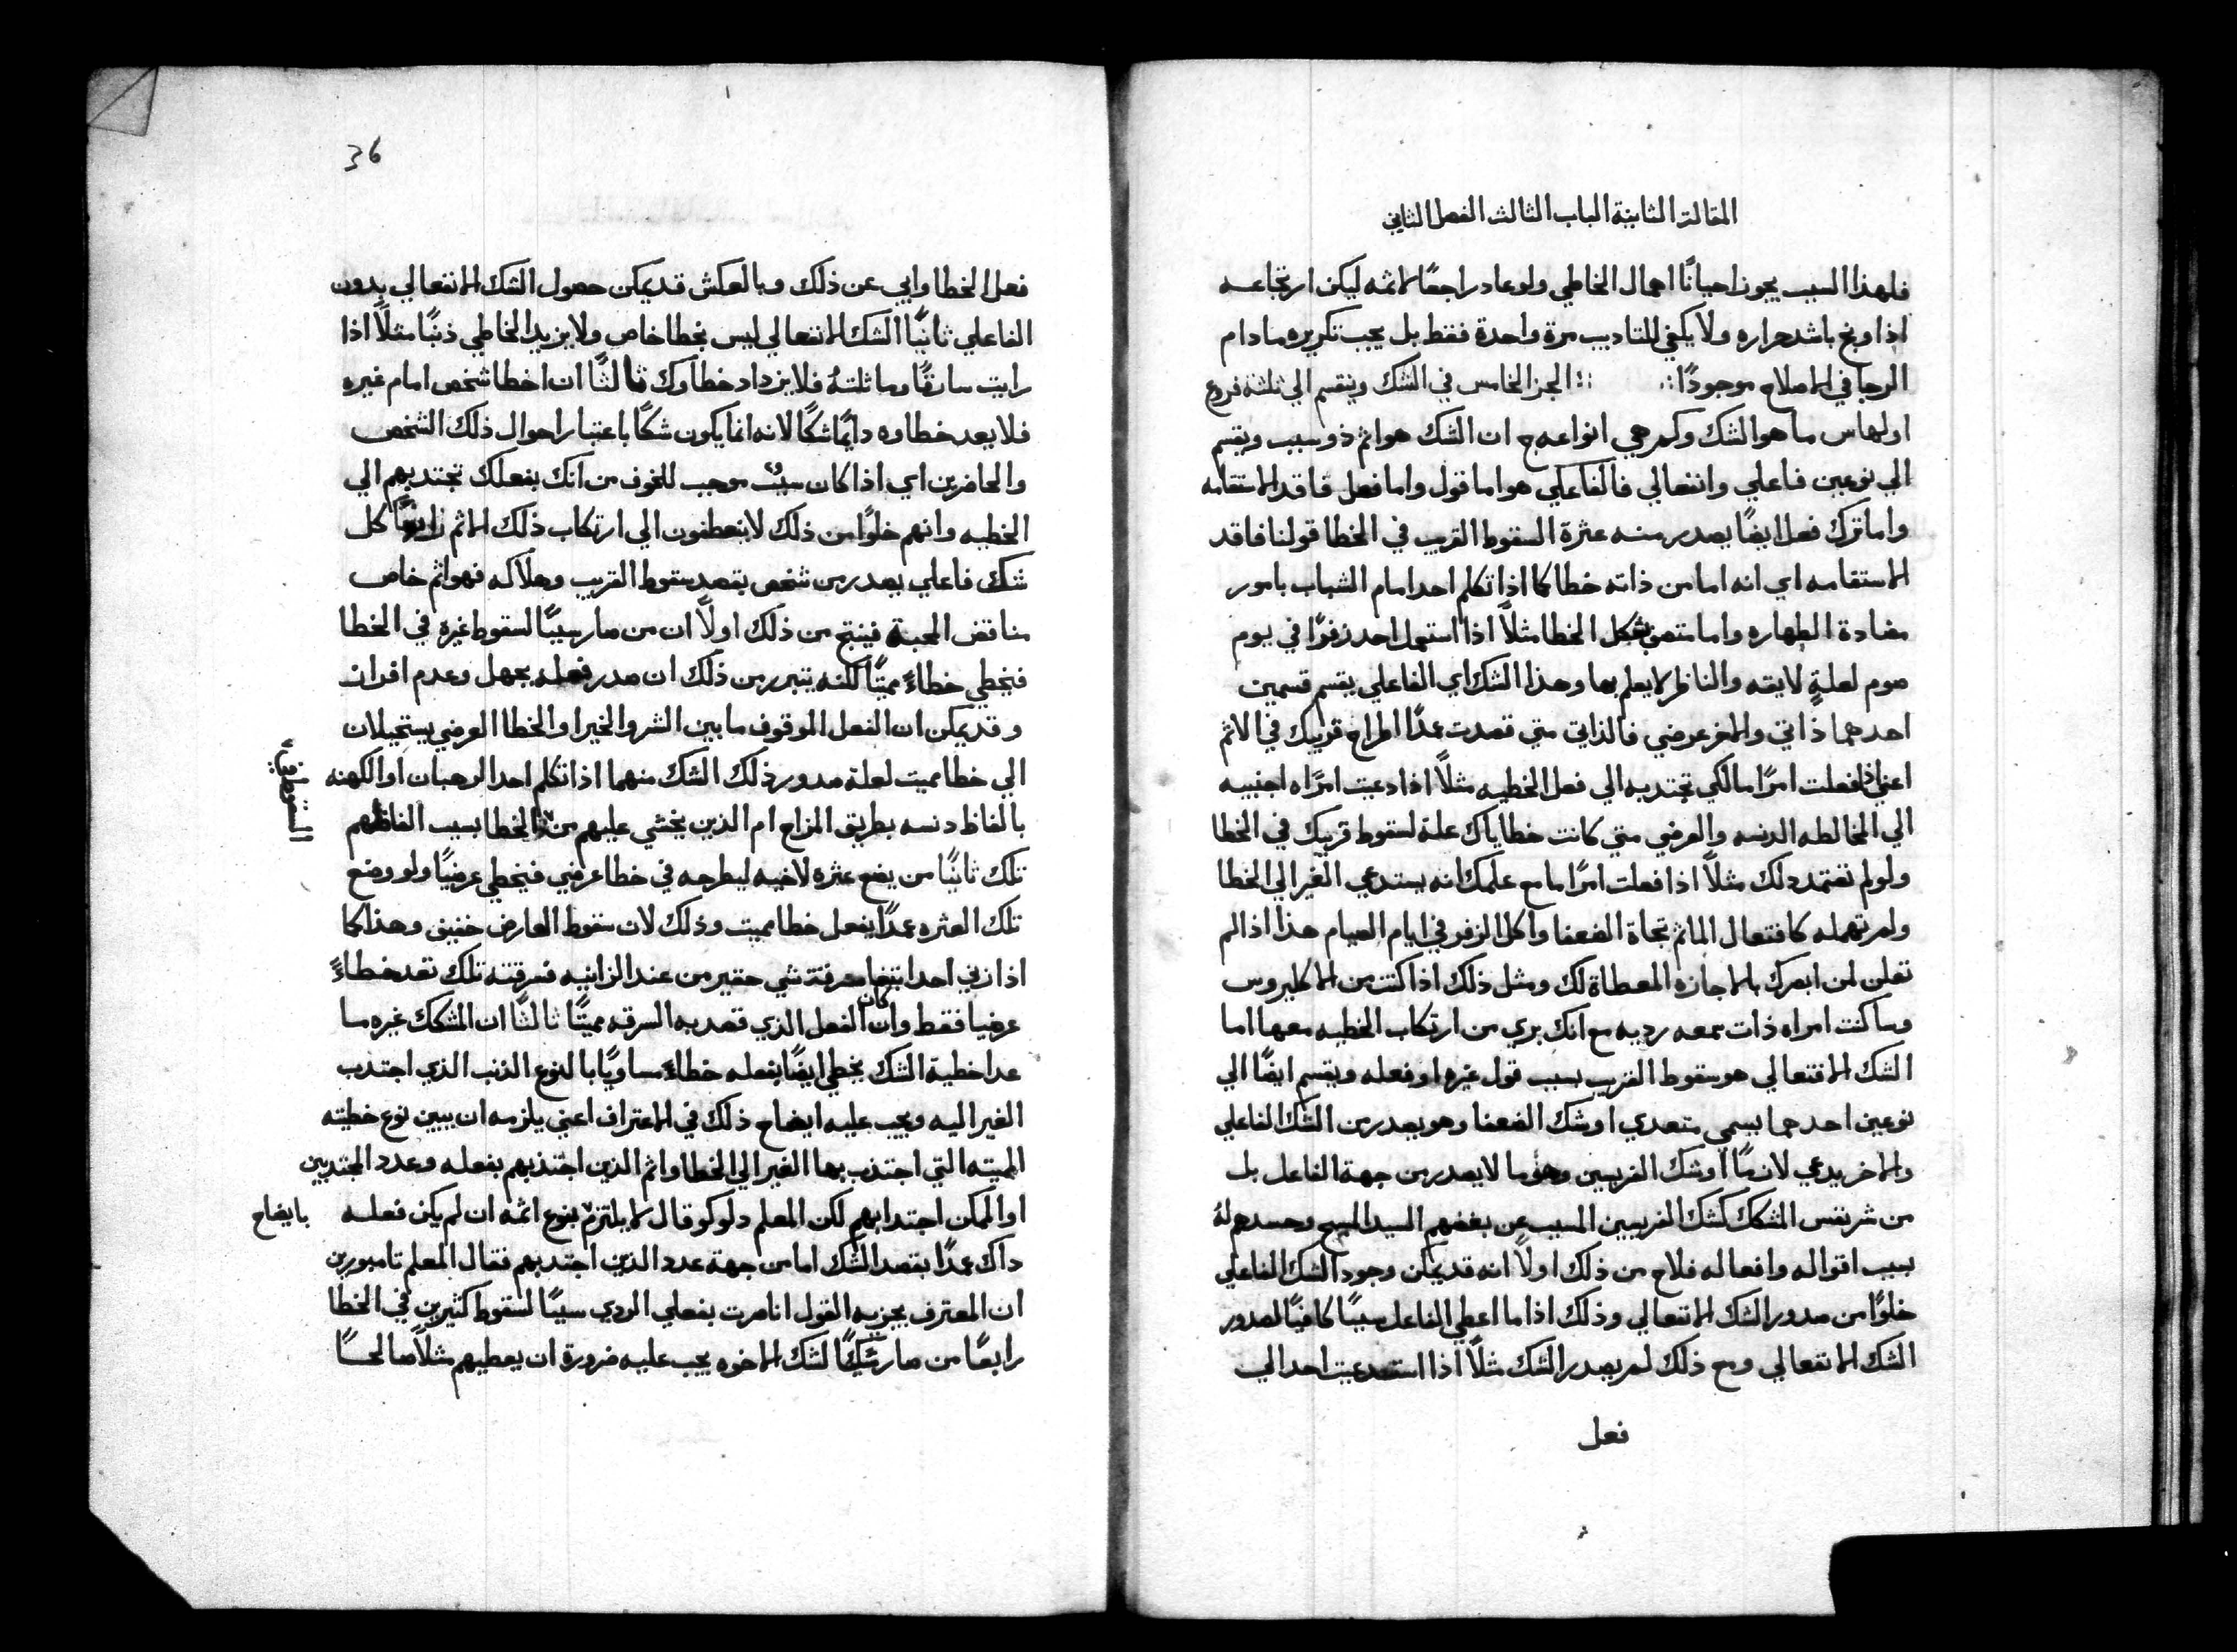 المقالة الثانية الباب الثالث الفصل الثاني
فلهذا السبب يجوز احيانًا اهمال الخاطي ولو عاد راجعًا لاثمه ليكن ارتجاعه
اذا وبخ باشد حراره ولا يكفي للتاديب مرة واحدة فقط بل يجب تكريره مادام
الرجا في الاصلاح موجودًا ∴ ∴ الجز الخامس في الشك وينقسم الي ثلثة فروع
اولها س ما هو الشك وكم هي انواعه ج ان الشك هو اثم ذو سبب ويقسم
الي نوعين فاعلي وانفعالي فالفاعلي هو اما قول واما فعل فاقد الاستقامه
واما ترك فعل ايضًا يصدر منه عثرة السقوط القريب في الخطا قولنا فاقد
الاستقامه اي انه اما من ذاته خطا كما اذا تكلم احد امام الشباب بامور
مضادة الطهاره واما متصف بشكل الخطا مثلًا اذا استعمل احد زفرًا في يوم
صوم لعلةٍ لايقه والناظر لا يعلم بها وهذا الشك اي الفاعلي يقسم قسمين
احدهما ذاتي والاخر عرضي فالذاتي متي قصدت عمدًا اطراح قريبك في الاثم
اعني اذا فعلت امرًا ما لكي تجتدبه الي فعل الخطيه مثلًا اذا دعيت امراه اجنبيه
الي المخالطه الدنسه والعرضي متي كانت خطاياك علة لسقوط قريبك في الخطا
ولو لم تعتمد دلك مثلًا اذا فعلت امرًا ما مع علمك انه يستدعي الغير الي الخطا
ولم تهمله كافتعال الماثم تجاة الضعفا واكل الزفر في ايام الصيام هذا اذا لم
تعلن لمن ابصرك بالاجازه المعطاة لك ومثل ذلك اذا كنت من الاكليروس
وساكنت امراه ذات سمعه رديه مع انك بري من ارتكاب الخطيه معها اما
الشك الانفعالي هو سقوط القريب بسبب قول غيره او فعله ويقسم ايضًا الي
نوعين احدهما يسمي متعدي او شك الضعفا وهو يصدر من الشك الفاعلي
والاخر يدعي لازمًا او شك الفريسيين وهو ما لا يصدر من جهة الفاعل بل
من شر نفس المشكك كشك الفريسيين المسبب عن بغضهم السيد المسيح وحسدهم لهُ
بسبب اقواله وافعاله فلاح من ذلك اولًا انه قد يمكن وجود الشك الفاعلي
خلوًا من صدور الشك الانفعالي وذلك اذا ما اعطي الفاعل سببًا كافيًا لصدور
الشك الانفعالي ومع ذلك لم يصدر الشك مثلًا اذا استدعيت احد الي
فعل
36
فعل الخطا وابي عن ذلك وبالعكش قد يمكن حصول الشك الانفعالي بدون
الفاعلي ثانيًا الشك الانفعالي ليس بخطا خاص ولا يزيد الخاطي ذنبًا مثلًا اذا
رايت سارقًا وماثلتهُ فلا يزداد خطاوك ثالثًا ان اخطا شخص امام غيره
فلا يعد خطاوه دايمًا شكًا لانه انما يكون شكًا باعتبار احوال ذلك الشخص
والحاضرين اي اذا كان سببٌ موجب للخوف من انك بفعلك تجتدبهم الي
الخطيه وانهم خلوًا من ذلك لا ينعطفون الي ارتكاب ذلك الاثم رابعًا كل
شك فاعلي يصدر من شخص بقصد سقوط القريب وهلاكه فهو اثم خاص
مناقض المحبة فينتج من ذلك اولًا ان من صار سببًا لسقوط غيره في الخطا
فيخطي خطاءً مميتًا لكنه يتبرر من ذلك ان صدر فعله بجهل وعدم افراز
وقد يمكن ان الفعل الموقوف ما بين الشر والخير او الخطا العرضي يستحيلان
الي خطا مميت لعلة صدور ذلك الشك منهما اذا تكلم احد الرهبان او الكهنه
بالفاظ دنسه بطريق المزاح ام الذين يخشي عليهم من الخطا بسبب الفاظهم
السقوط في
تلك ثانيًا من يضع عثره لاخيه ليطرحه في خطا عرضي فيخطي عرضيًا ولو وضع
تلك العثره عمدًا يفعل خطا مميت وذلك لان سقوط العارض خفيف وهذا كما
اذا زني احد ابتغا سرقة شي حقير من عند الزانيه فسرقته تلك تعد خطاءً
عرضيا فقط وان كان الفعل الذي قصد به السرقه مميتًا ثالثًا ان المشكك غيره ما
عدا خطية الشك يخطي ايضًا بفعله خطاءً مساويًا بالنوع الذنب الذي اجتدب
الغير اليه ويجب عليه ايضاح ذلك في الاعتراف اعني يلزمه ان يبين نوع خطيته
المميته التي اجتذب بها الغير الي الخطا واثم الذين اجتذبهم بفعله وعدد المجتدبين
او الممكن اجتدابهم لكن المعلم دلوكو قال لا يلتزم بنوع اثمه ان لم يكن فعله
بايضاح
داك عمدًا بقصد الشك اما من جهة عدد الذين اجتدبهم فقال المعلم تامبورين
ان المعترف يجزيه القول انا صرت بفعلي الردي سببًا لسقوط كثيرين في الخطا
رابعًا من صار مشككًا لشك الاخوه يجب عليه ضرورة ان يعطيهم مثلًا صالحًا